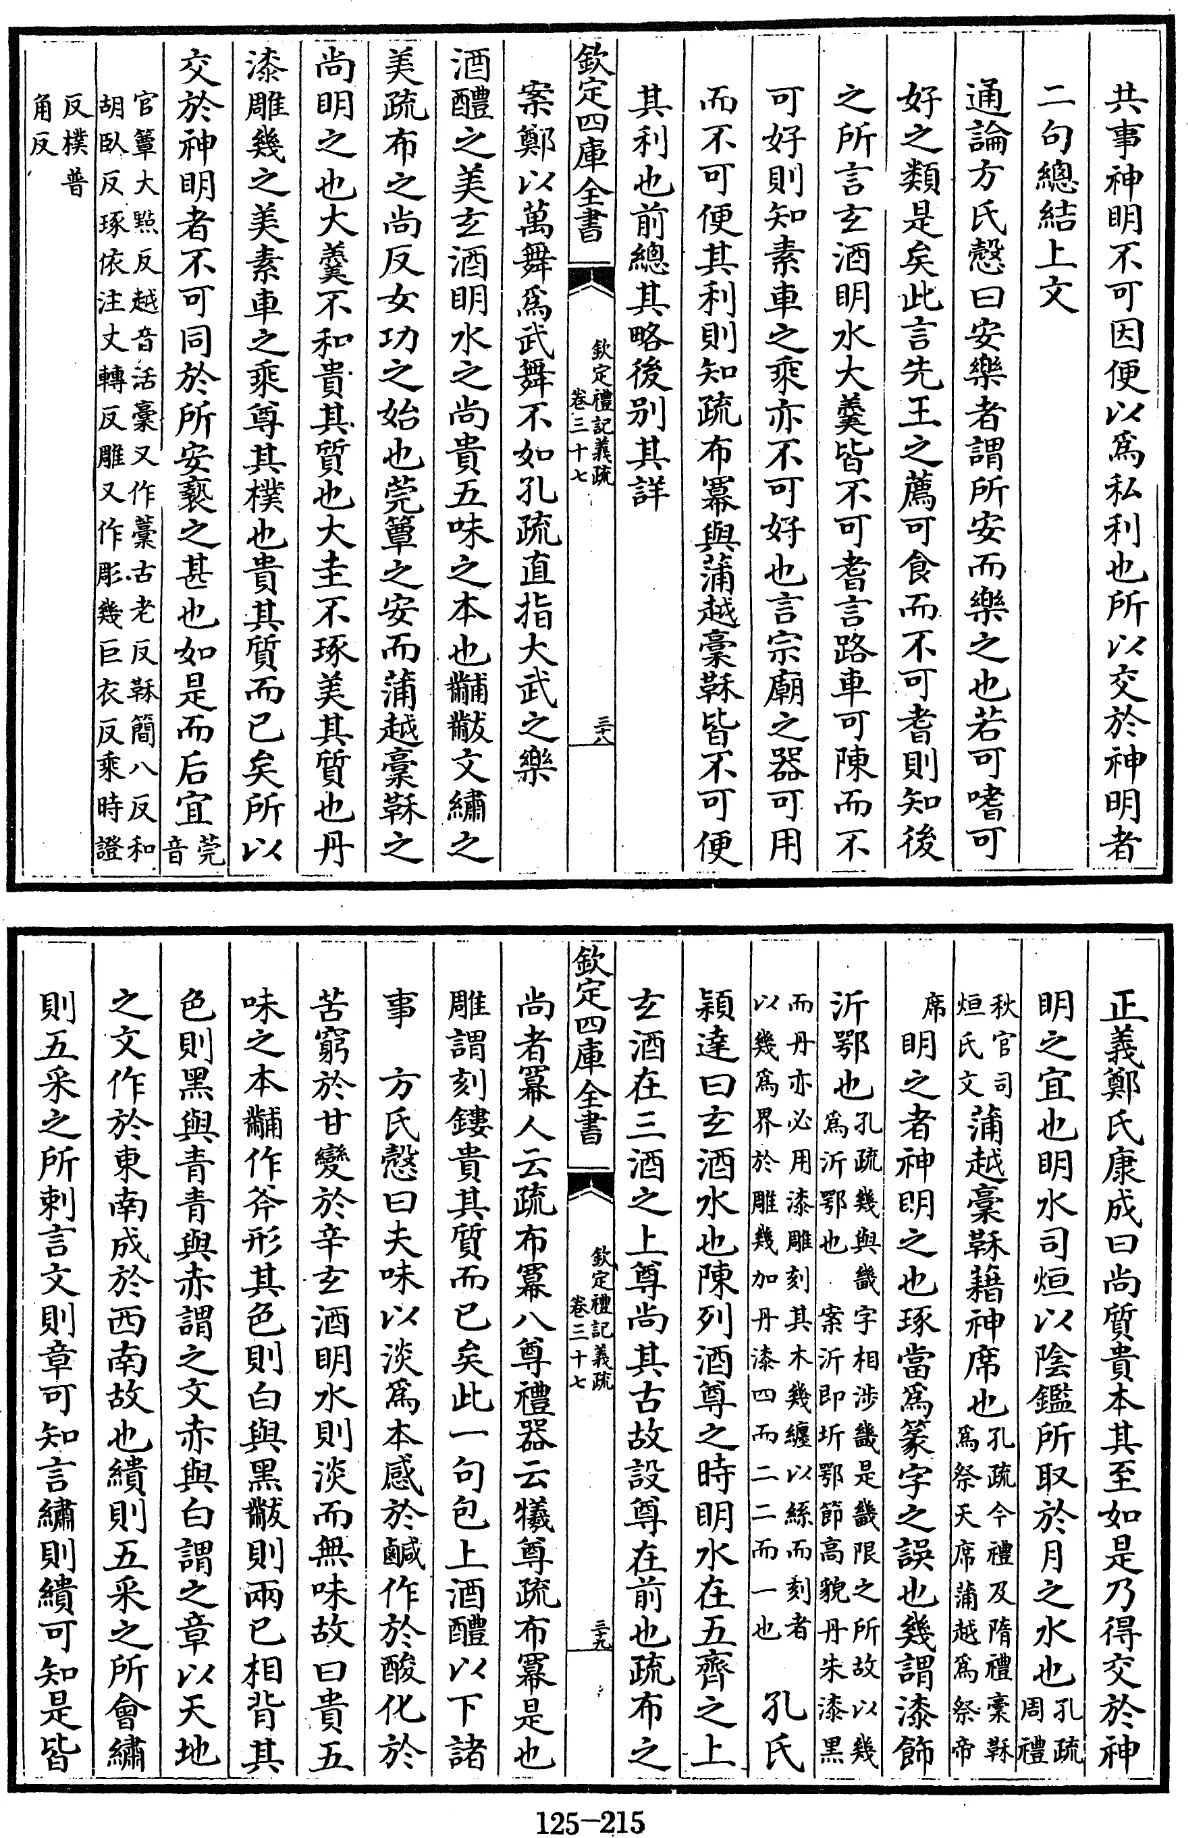 共事神明不可因便以為私利也所以交於神明者
二句總結上文
通論方氏慤曰安樂者謂所安而樂之也若可嗜可
好之類是矣此言先王之薦可食而不可耆則知後
之所言玄酒明水大羹皆不可耆言路車可陳而不
可好則知素車之乘亦不可好也言宗廟之器可用
而不可便其利則知疏布冪與蒲越稾鞂皆不可便
其利也前總其略後別其詳
欽定四庫全書
欽定禮記義疏
卷三十七
三十八
案鄭以萬舞為武舞不如孔疏直指大武之樂
酒醴之美玄酒明水之尚貴五味之本也黼黻文繡之
美疏布之尚反女功之始也莞簟之安而蒲越稾鞂之
尚明之也大羹不和貴其質也大圭不琢美其質也丹
漆雕幾之美素車之乘尊其樸也貴其質而已矣所以
交於神明者不可同於所安褻之甚也如是而后宜莞
音
官簟大點反越音活稾又作藁古老反鞂簡八反和
胡臥反琢依注丈轉反雕又作彫幾巨衣反乘時證
反樸普
角反
正義鄭氏康成曰尚質貴本其至如是乃得交於神
明之宜也明水司烜以陰鑑所取於月之水也孔疏
周禮
秋官司
烜氏文蒲越稾鞂藉神席也孔疏今禮及隋禮稾鞂
為祭天席蒲越為祭帝
席明之者神明之也琢當為篆字之誤也幾謂漆飾
沂鄂也孔疏幾與畿字相涉畿是畿限之所故以幾
為沂鄂也案沂即圻鄂節高貌丹朱漆黑
而丹亦必用漆雕刻其木幾纏以絲而刻者
以幾為界於雕幾加丹漆四而二二而一也孔氏
穎達曰玄酒水也陳列酒尊之時明水在五齊之上
玄酒在三酒之上尊尚其古故設尊在前也疏布之
欽定四庫全書
欽定禮記義疏
卷三十七
三十九
尚者冪人云疏布冪八尊禮器云犧尊疏布冪是也
雕謂刻鏤貴其質而已矣此一句包上酒醴以下諸
事方氏慤曰夫味以淡為本感於鹹作於酸化於
苦窮於甘變於辛玄酒明水則淡而無味故曰貴五
味之本黼作斧形其色則白與黑黻則兩已相背其
色則黑與青青與赤謂之文赤與白謂之章以天地
之文作於東南成於西南故也繢則五采之所會繡
則五采之所刺言文則章可知言繡則繢可知是皆
125-215